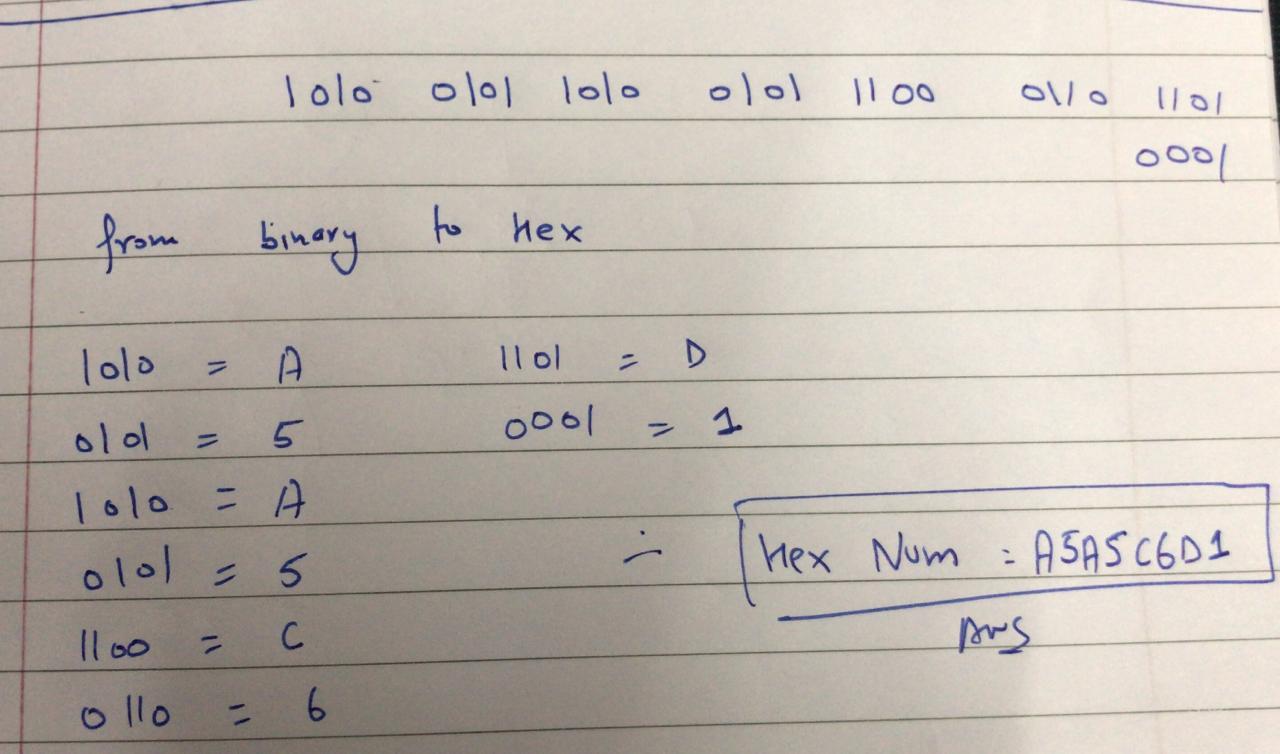 1010 0101 1010 0101 1100 0110 1101
0001
from binary to Hex
1010 = A
0101 = 5
1010 = A
0101 = 5
1100 = C
0110 = 6
1101 = D
0001 = 1
∴ Hex Num = A5A5C6D1
Ans